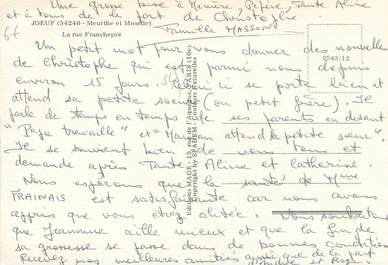 Une grosse bise à Mémère, Pépère, Tante Aline
et à tous de la part de Christophe
Famille MASSON
JOEUF (54240 - Meurthe et Moselle)
La rue Franchepré
2543/12
Un petit mot pour vous donner des nouvelles
de Christophe qui est parmi nous depuis
environ 15 jours. Celui ci se porte bien et
attend sa petite soeur (ou petit frère). Il
parle de temps en temps de ses parents en disant
"Papa travaille" et "Maman attend la petite soeur".
Il se souvient bien de vous tous et
demande après Tante Aline et Catherine.
Nous espérons que la santé de Mme
FRAINAIS est satisfaisante car nous avons
appris que vous étiez alitée. Nous souhaitons
que Jeannine aille mieux et que la fin de
sa grossesse se passe dans de bonnes conditions
Recevez nos meilleures amitiés ainsi que de la part
d'André et Rose
Editions MAGE - 15, rue St-Antoine - PARIS (10e)
Copyright by SPADEM - Couleurs Naturelles